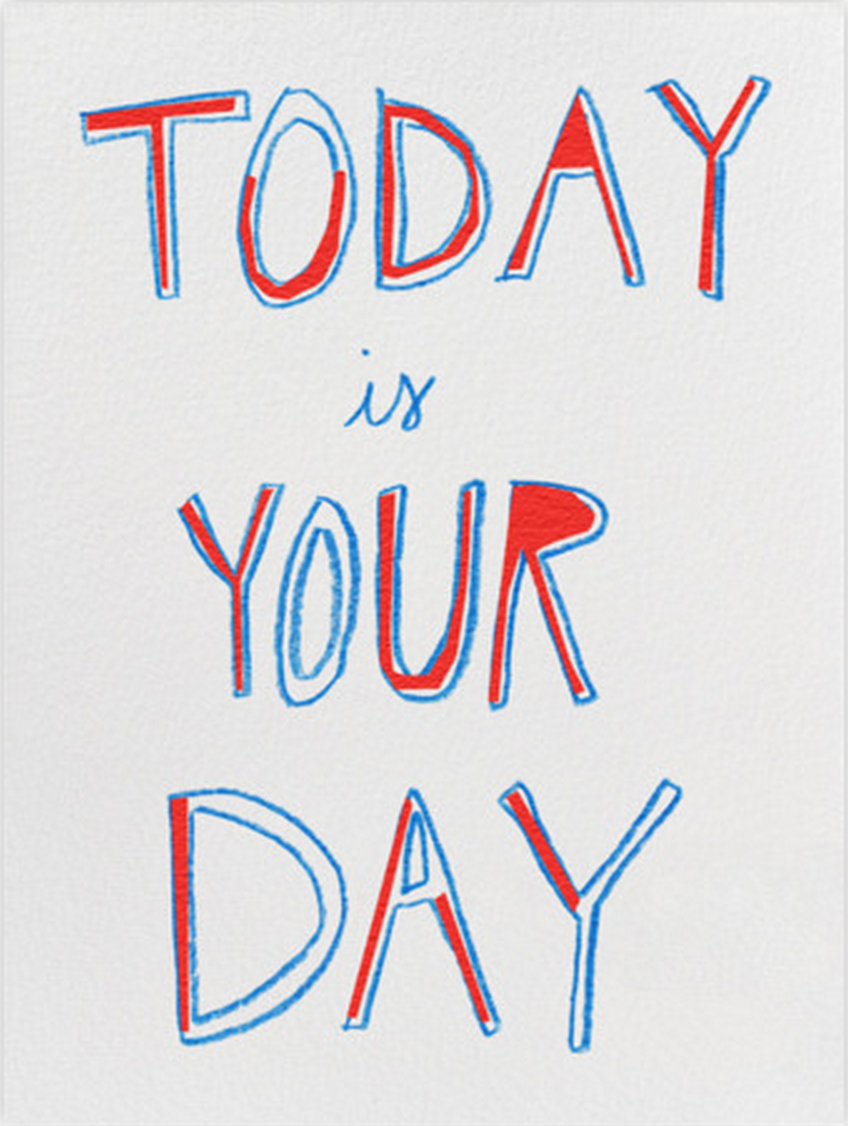 TODAY
is
YOUR
DAY